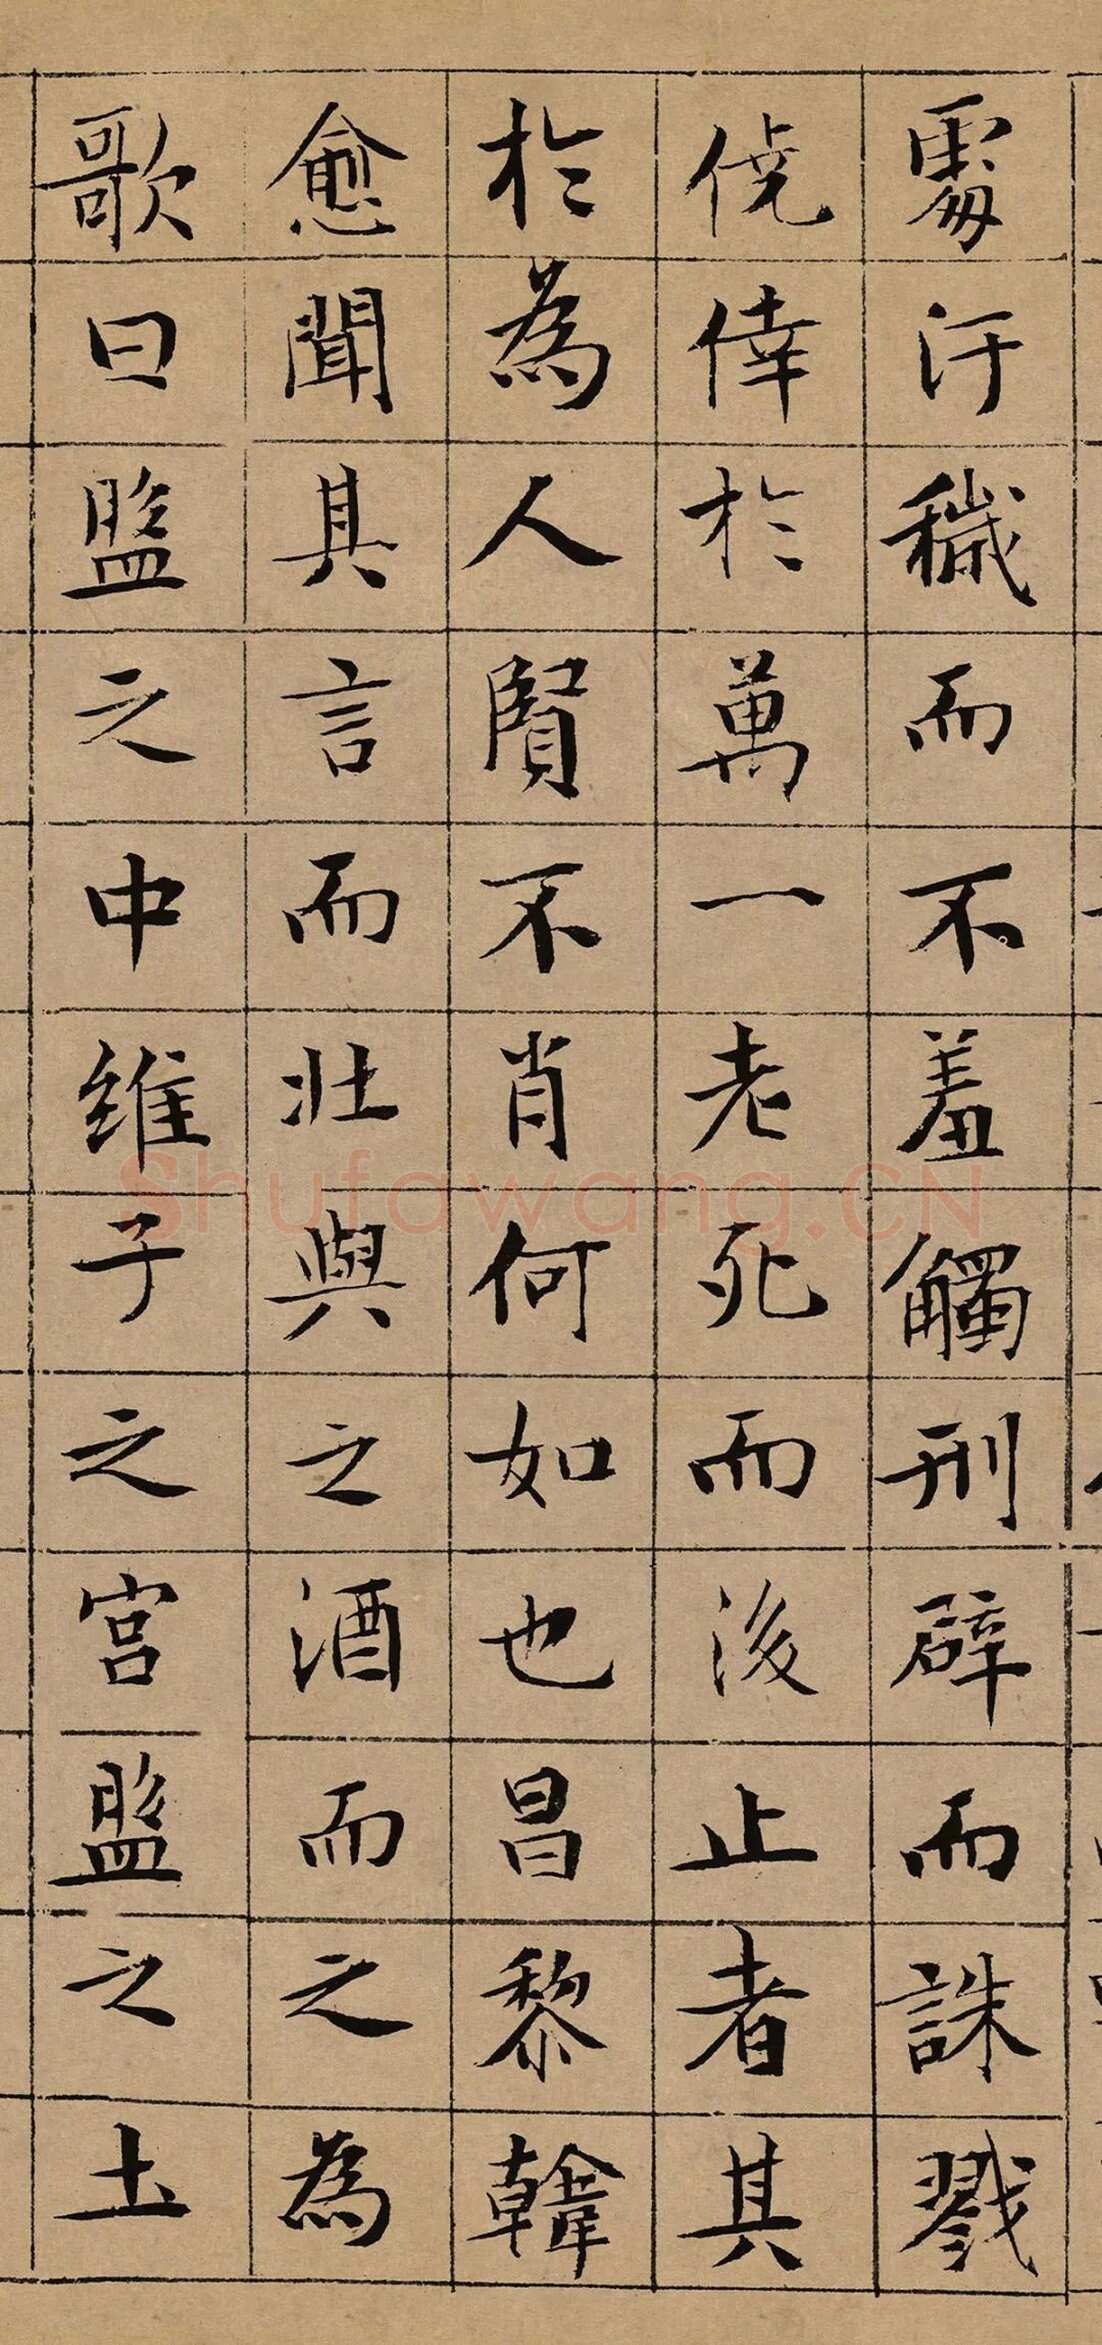 處汙穢而不羞觸刑辟而誅戮
僥倖於萬一老死而後止者其
於為人賢不肖何如也昌黎韓
愈聞其言而壯與之酒而之為
歌曰盤之中維子之宮盤之土
Shufawang.CN